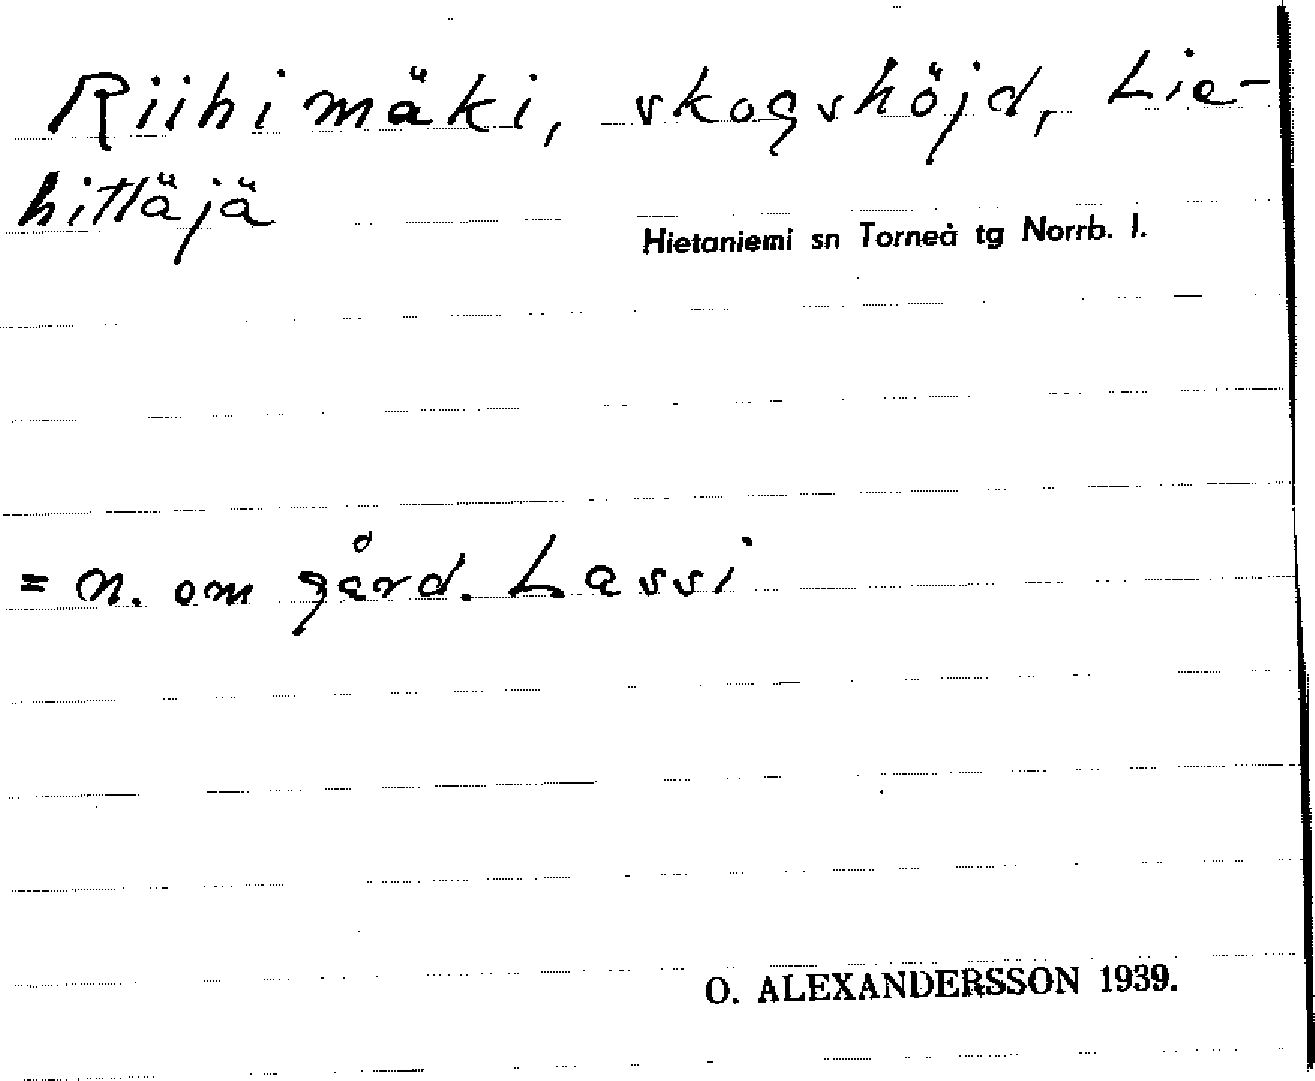 Riihimäki, skogshöjd, Lie-
hittäjä
Hietaniemi sn Torneå tg Norrb. l.
= n. om gård. Lassi
O. ALEXANDERSSON 1939.